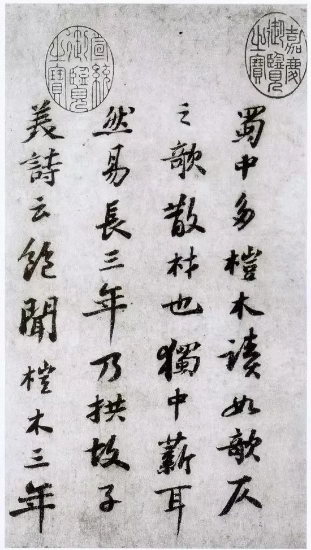 嘉慶御覽之寶
蜀中多榿木讀如欹仄
之欹散材也獨中薪耳
然易長三年乃拱故子
宣統御覽之寶
美詩云飽聞榿木三年